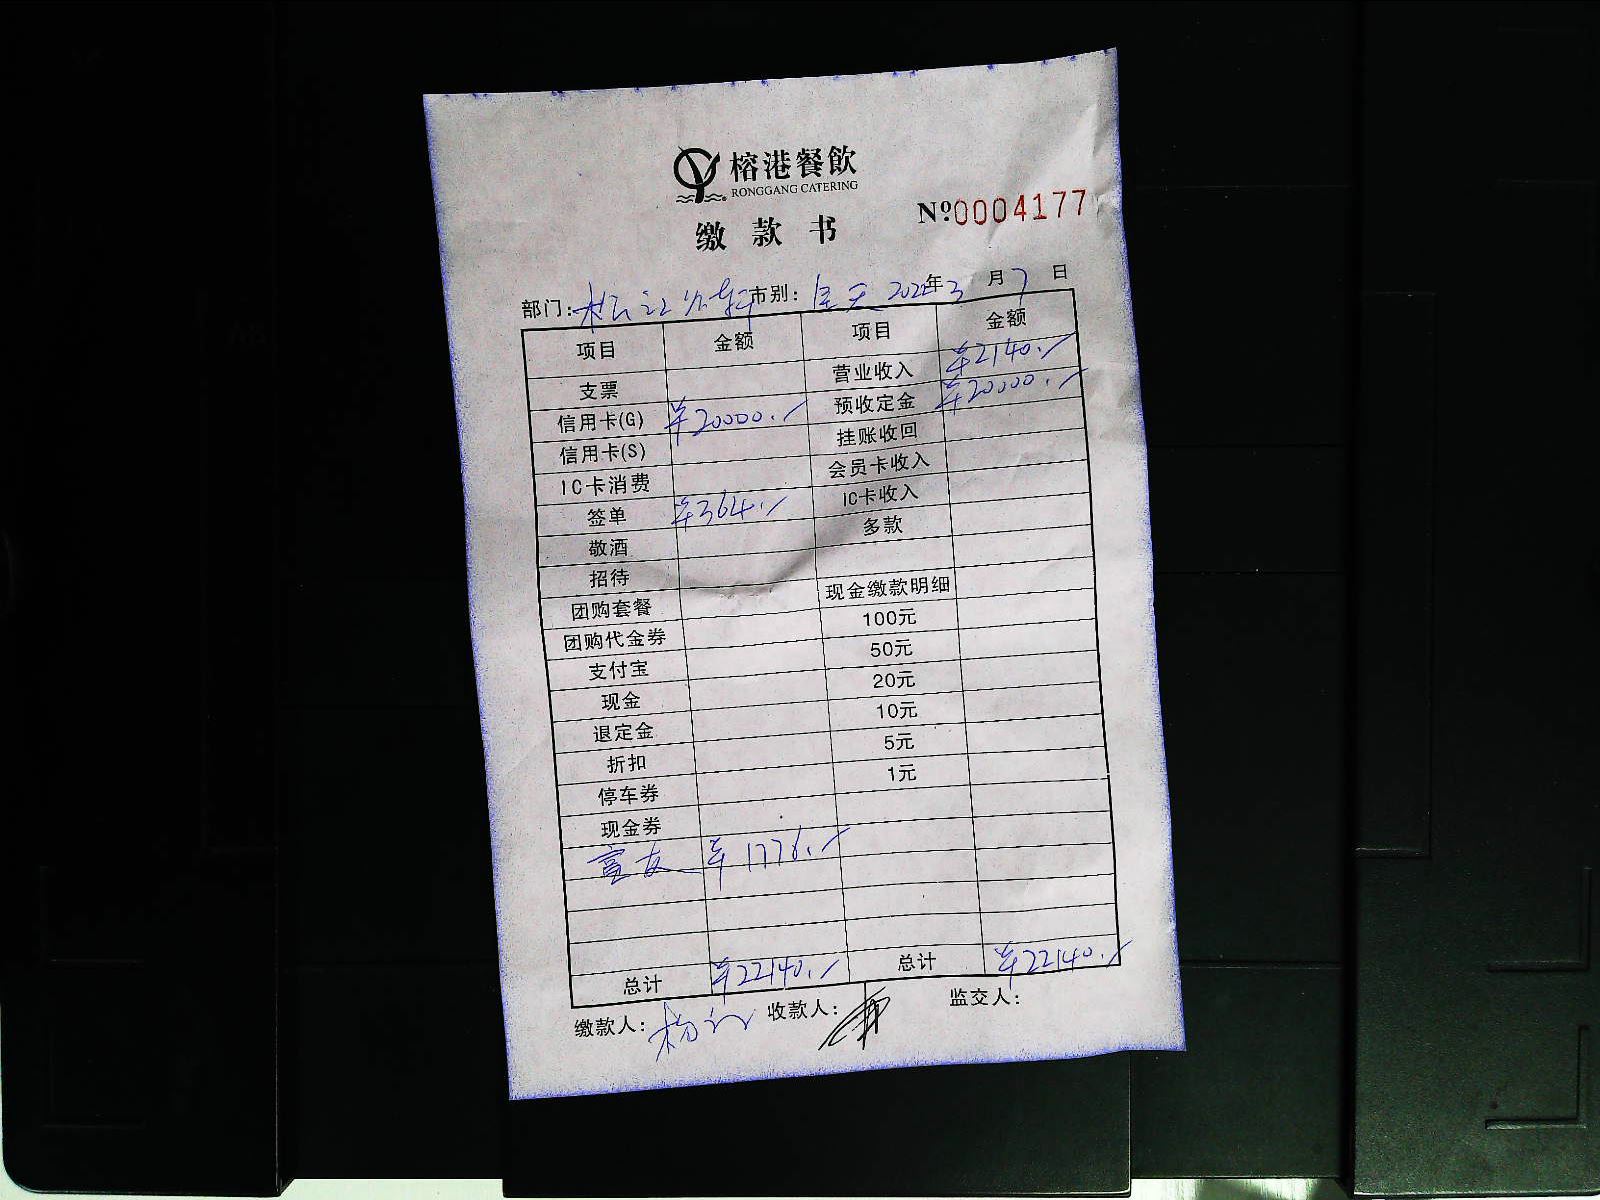 榕港餐飲
RONGGANG CATERING
缴款书
Nº0004177
部门: 市别: 全天 2022年3月7日
项目 金额 项目 金额
支票 营业收入 ¥2140.
信用卡(G) ¥20000. 预收定金 ¥20000.
信用卡(S) 挂账收回
IC卡消费 会员卡收入
签单 ¥364. IC卡收入
敬酒 多款
招待
团购套餐 现金缴款明细
团购代金券 100元
支付宝 50元
现金 20元
退定金 10元
折扣 5元
停车券 1元
现金券
富友 ¥1776.
总计 ¥22140. 总计 ¥22140.
缴款人: 收款人: 监交人: